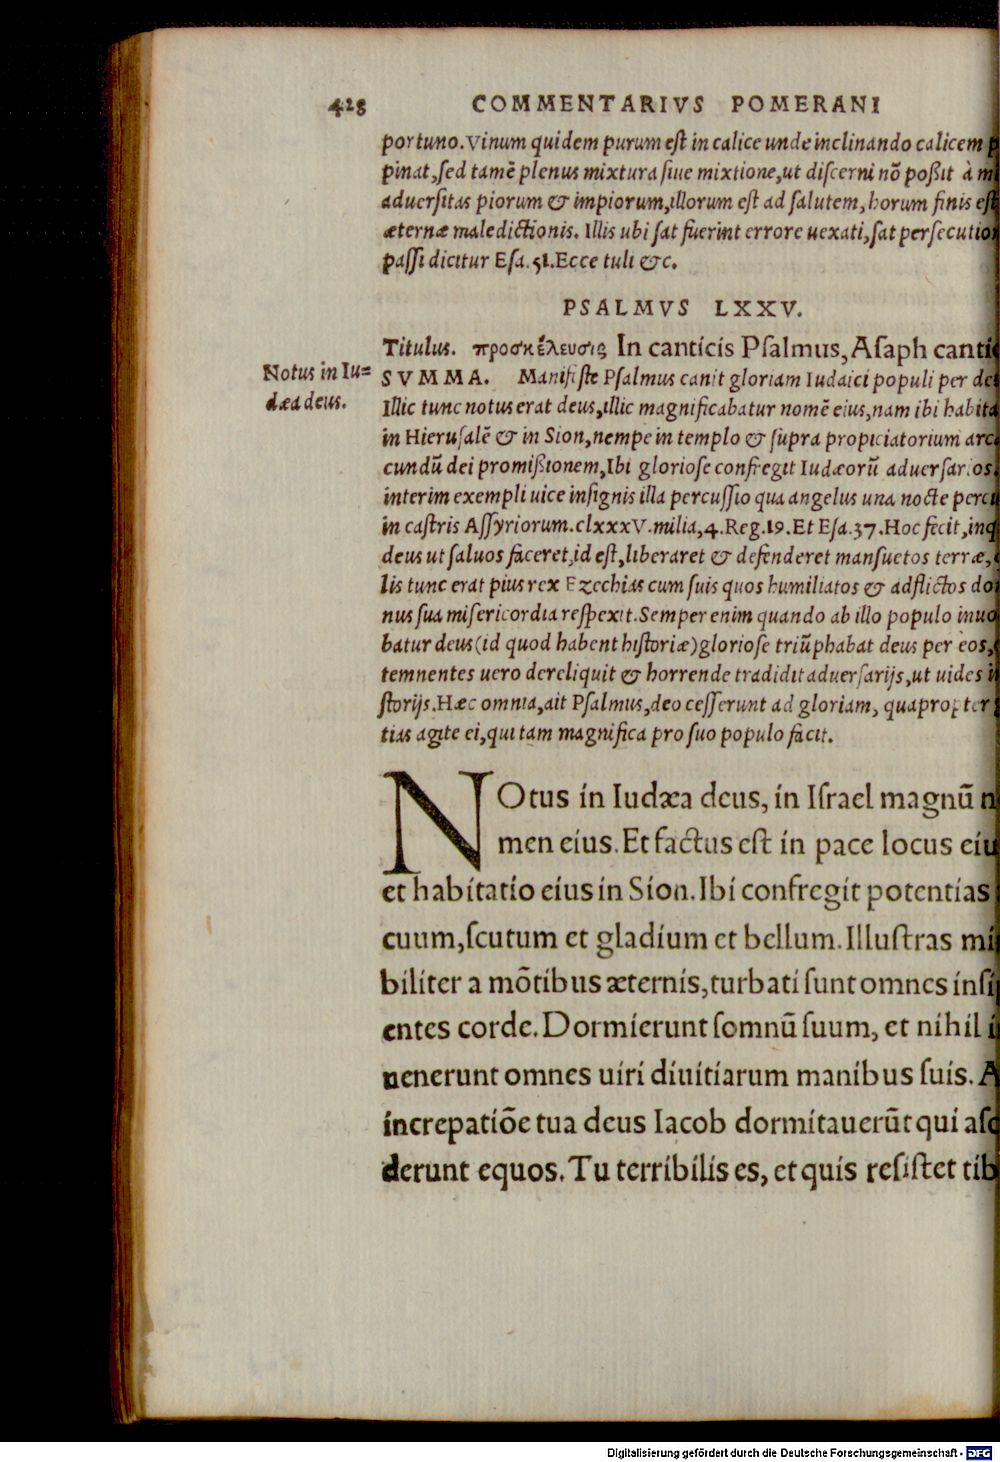 428 COMMENTARIVS POMERANI
portuno. Vinum quidem purum eſt in calice unde inclinando calicem p
pinat, ſed tamē plenus mixtura ſiue mixtione, ut diſcerni nō poßit à m
aduerſitas piorum & impiorum, illorum eſt ad ſalutem, horum finis eſt
æternæ maledictionis. Illis ubi ſat fuerint errore uexati, ſat perſecutio
paſſi dicitur Eſa. 51. Ecce tuli &c.
PSALMVS LXXV.
Titulus. προσκέλευσις In canticis Pſalmus, Aſaph canti
Notus in Iu=
dæa deus.
SVMMA. Manifiſte Pſalmus canit gloriam Iudaici populi per de
Illic tunc notus erat deus, illic magnificabatur nomē eius, nam ibi habita
in Hieruſalē & in Sion, nempe in templo & ſupra propiciatorium arc
cundū dei promißionem, Ibi glorioſe confregit Iudæorū aduerſarios.
interim exempli uice inſignis illa percuſſio qua angelus una nocte percu
in caſtris Aſſyriorum. clxxxV. milia, 4. Reg. 19. Et Eſa. 37. Hoc fecit, inq
deus ut ſaluos faceret, id eſt, liberaret & defenderet manſuetos terræ,
lis tunc erat pius rex Ezechias cum ſuis quos humiliatos & adflictos do
nus ſua miſericordia reſpexit. Semper enim quando ab illo populo inuo
batur deus (id quod habent hiſtoriæ) glorioſe triūphabat deus per eos,
temnentes uero dereliquit & horrende tradidit aduerſarijs, ut uides i
ſtorijs. Hæc omnia, ait Pſalmus, deo ceſſerunt ad gloriam, quapropter
tias agite ei, qui tam magnifica pro ſuo populo facit.
NOtus in Iudæa deus, in Iſrael magnū n
men eius. Et factus eſt in pace locus eiu
et habitatio eius in Sion. Ibi confregit potentias
cuum, ſcutum et gladium et bellum. Illuſtras mi
biliter a mōtibus æternis, turbati ſunt omnes inſi
entes corde. Dormierunt ſomnū ſuum, et nihil i
uenerunt omnes uiri diuitiarum manibus ſuis. A
increpatiōe tua deus Iacob dormitauerūt qui aſc
derunt equos. Tu terribilis es, et quis reſiſtet tib
Digitalisierung gefördert durch die Deutsche Forschungsgemeinschaft - DFG